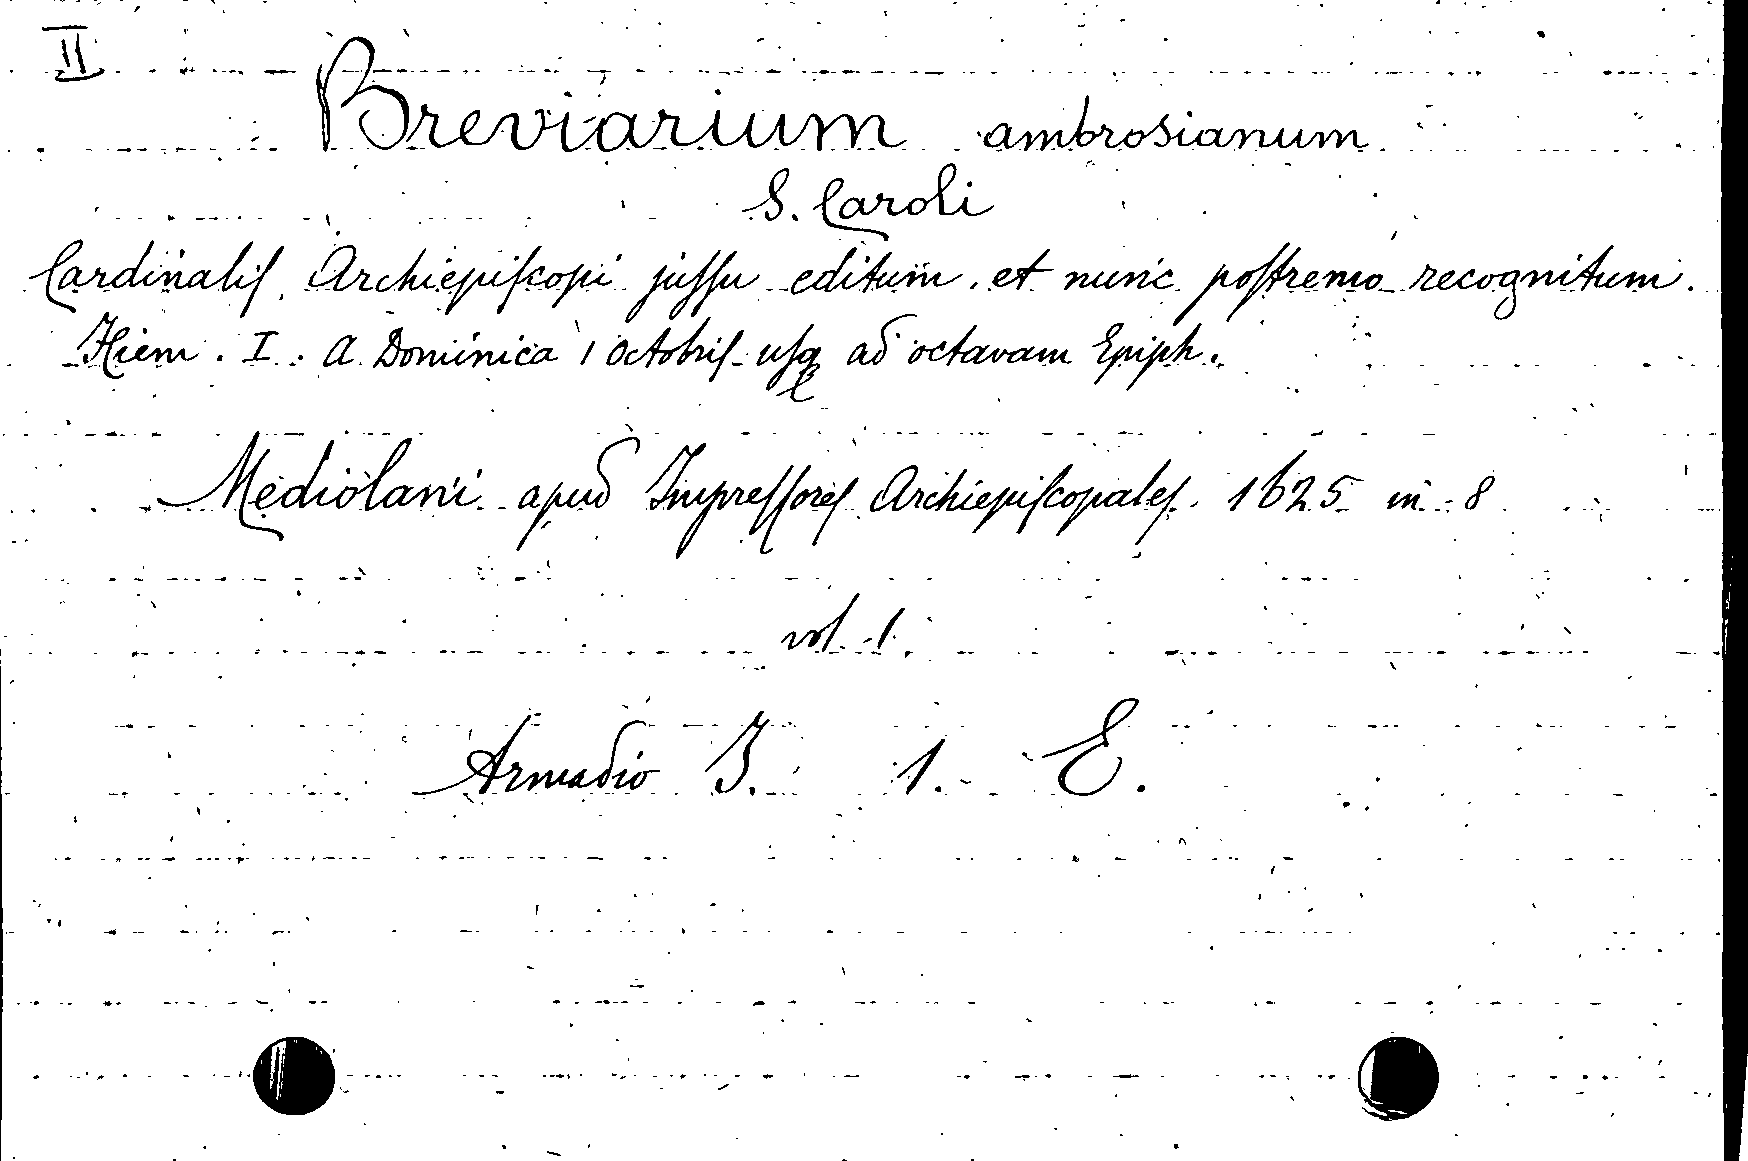 II
Breviarium ambrosianum
S. Caroli
Cardinaliſ Archiepiſcopi juſſu editum et nunc poſtremo recognitum.
Hiem. I. A Dominica 1 Octobriſ uſq ad octavam Epiph.
Mediolani apud Impreſſoreſ Archiepiſcopaleſ. 1625 in 8
vol 1.
Armadio I. 1. E.